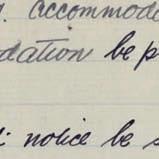 accommoda
dation be p
notice be